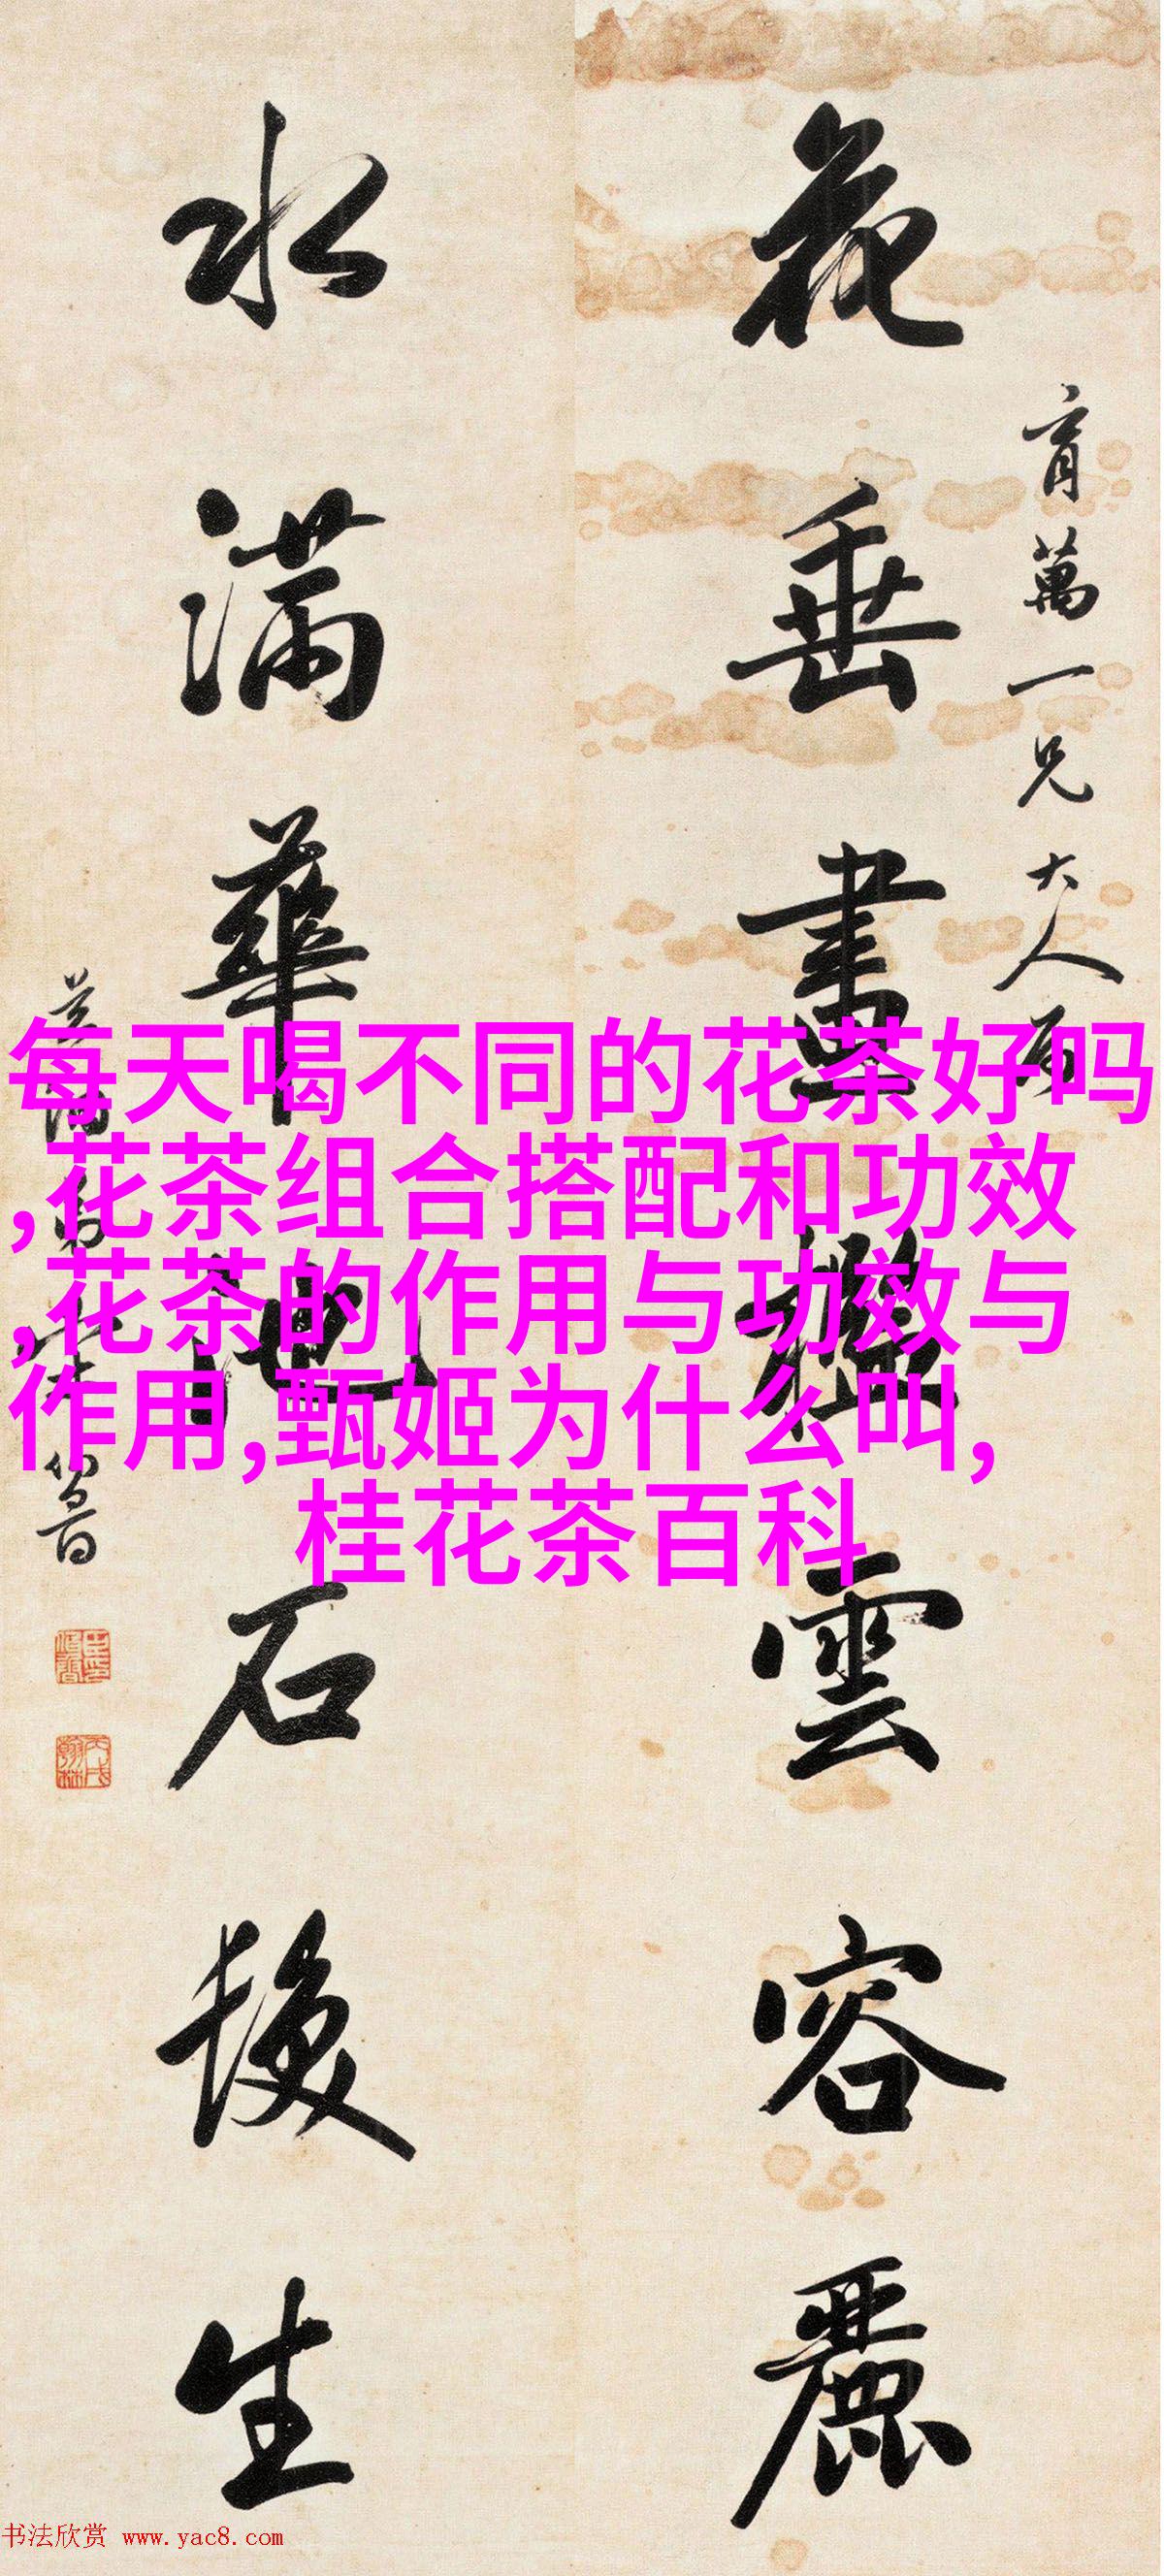 花垂畫檻雲容麗
育萬一兄大人
水满華池石
生
每天喝不同的花茶好吗
,花茶组合搭配和功效
,花茶的作用与功效与
作用,甄姬为什么叫,
桂花茶百科
书法欣赏 www.yac8.com